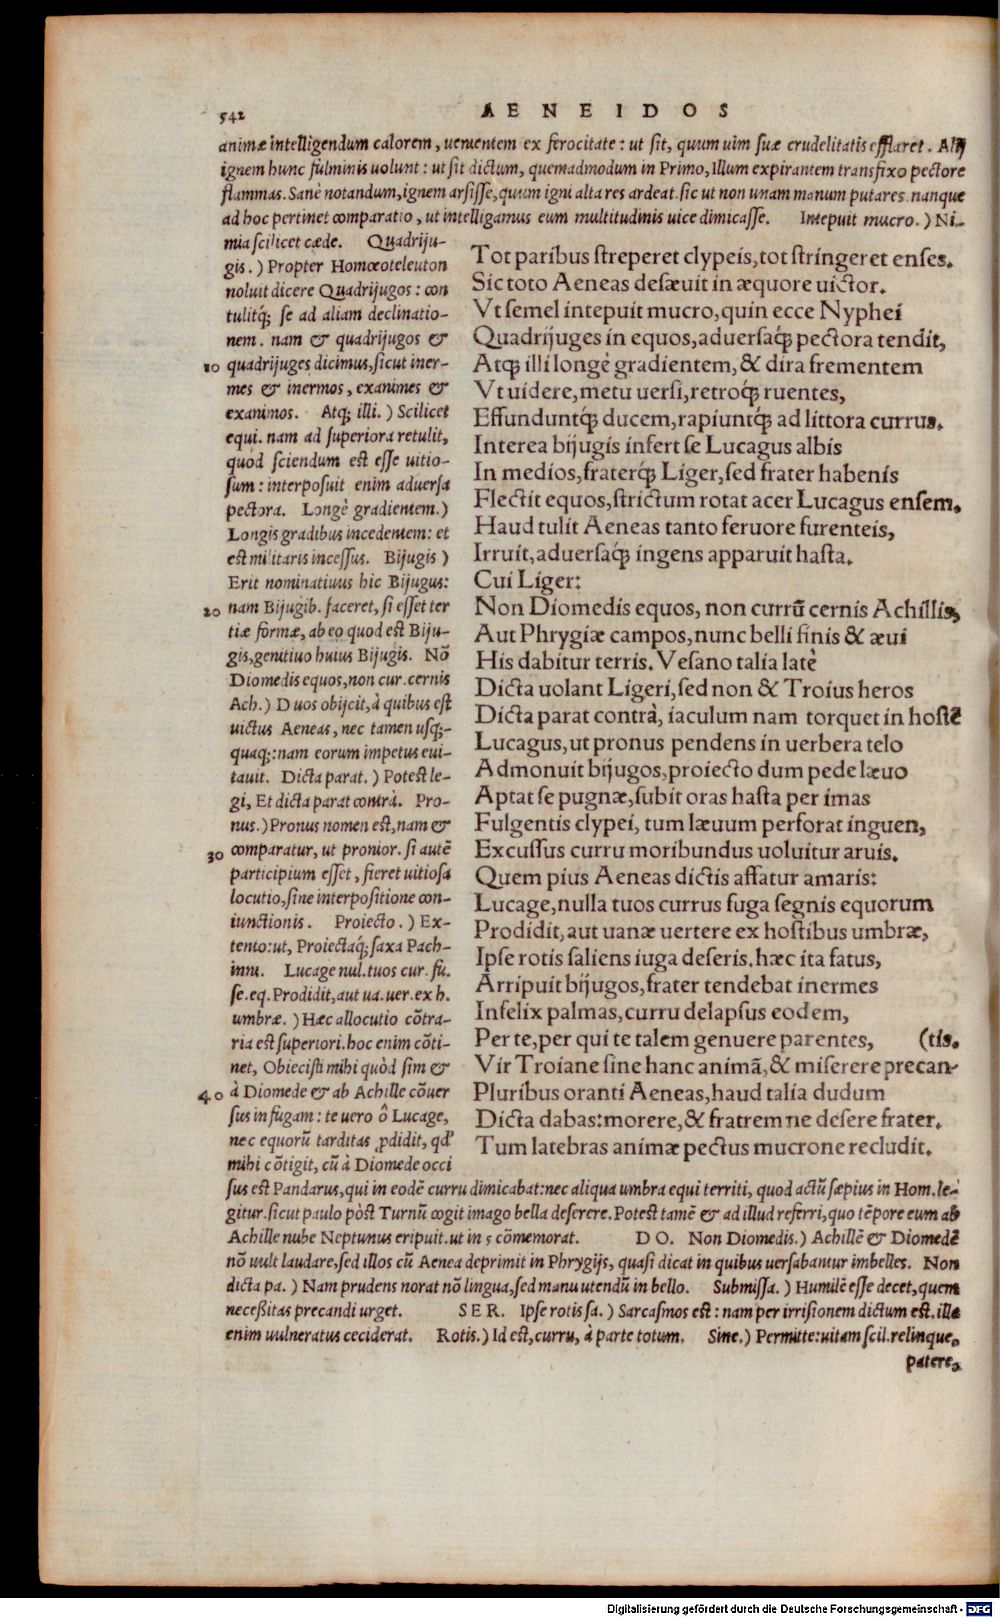 542
AENEIDOS
animæ intelligendum calorem, uenientem ex ferocitate: ut sit, quum uim suæ crudelitatis efflaret. Alij
ignem hunc fulminis uolunt: ut sit dictum, quemadmodum in Primo, Illum expirantem transfixo pectore
flammas. Sanè notandum, ignem arsisse, quum igni alta res ardeat. sic ut non unam manum putares. nanque
ad hoc pertinet comparatio, ut intelligamus eum multitudinis uice dimicasse. Intepuit mucro.) Ni-
mia scilicet cæde. Quadriju-
gis.) Propter Homœoteleuton
noluit dicere Quadrijugos: con
tulitq; se ad aliam declinatio-
nem. nam & quadrijugos &
10 quadrijuges dicimus, sicut iner-
mes & inermos, exanimes &
exanimos. Atq; illi.) Scilicet
equi. nam ad superiora retulit,
quod sciendum est esse uitio-
sum: interposuit enim aduersa
pectora. Longè gradientem.)
Longis gradibus incedentem: et
est militaris incessus. Bijugis)
Erit nominatiuus hic Bijugus:
20 nam Bijugib. faceret, si esset ter
tiæ formæ, ab eo quod est Biju-
gis, genitiuo huius Bijugis. Nõ
Diomedis equos, non cur. cernis
Ach.) Duos obijcit, à quibus est
uictus Aeneas, nec tamen usq;-
quaq;: nam eorum impetus eui-
tauit. Dicta parat.) Potest le-
gi, Et dicta parat contrà. Pro-
nus.) Pronus nomen est, nam &
30 comparatur, ut pronior. si autẽ
participium esset, fieret uitiosa
locutio, sine interpositione con-
iunctionis. Proiecto.) Ex-
tento: ut, Proiectaq́; saxa Pach-
inni. Lucage nul. tuos cur. fu.
se. eq. Prodidit, aut ua. uer. ex h.
umbræ.) Hæc allocutio cõtra-
ria est superiori. hoc enim cõti-
net, Obiecisti mihi quòd sim &
40 à Diomede & ab Achille cõuer
sus in fugam: te uero ô Lucage,
nec equorũ tarditas ꝓdidit, qđ
mihi cõtigit, cũ à Diomede occi
Tot paribus streperet clypeis, tot stringeret enses.
Sic toto Aeneas desæuit in æquore uictor.
Vt semel intepuit mucro, quin ecce Nyphei
Quadrijuges in equos, aduersaq́; pectora tendit,
Atq; illi longè gradientem, & dira frementem
Vt uidere, metu uersi, retroq́; ruentes,
Effunduntq́; ducem, rapiuntq́; ad littora currus.
Interea bijugis infert se Lucagus albis
In medios, fraterq́; Liger, sed frater habenis
Flectit equos, strictum rotat acer Lucagus ensem.
Haud tulit Aeneas tanto feruore furenteis,
Irruit, aduersaq́; ingens apparuit hasta.
Cui Liger:
Non Diomedis equos, non currũ cernis Achillis,
Aut Phrygiæ campos, nunc belli finis & æui
His dabitur terris. Vesano talia latè
Dicta uolant Ligeri, sed non & Troius heros
Dicta parat contrà, iaculum nam torquet in hostẽ
Lucagus, ut pronus pendens in uerbera telo
Admonuit bijugos, proiecto dum pede læuo
Aptat se pugnæ, subit oras hasta per imas
Fulgentis clypei, tum læuum perforat inguen,
Excussus curru moribundus uoluitur aruis.
Quem pius Aeneas dictis affatur amaris:
Lucage, nulla tuos currus fuga segnis equorum
Prodidit, aut uanæ uertere ex hostibus umbræ,
Ipse rotis saliens iuga deseris. hæc ita fatus,
Arripuit bijugos, frater tendebat inermes
Infelix palmas, curru delapsus eodem,
Per te, per qui te talem genuere parentes, (tis.
Vir Troiane sine hanc animã, & miserere precan-
Pluribus oranti Aeneas, haud talia dudum
Dicta dabas: morere, & fratrem ne desere frater.
Tum latebras animæ pectus mucrone recludit.
sus est Pandarus, qui in eodẽ curru dimicabat: nec aliqua umbra equi territi, quod actũ sæpius in Hom. le-
gitur. sicut paulo pòst Turnũ cogit imago bella deserere. Potest tamẽ & ad illud referri, quo tẽpore eum ab
Achille nube Neptunus eripuit. ut in 5 cõmemorat. DO. Non Diomedis.) Achillẽ & Diomedẽ
nõ uult laudare, sed illos cũ Aenea deprimit in Phrygijs, quasi dicat in quibus uersabantur imbelles. Non
dicta pa.) Nam prudens norat nõ lingua, sed manu utendũ in bello. Submissa.) Humilẽ esse decet, quem
necessitas precandi urget. SER. Ipse rotis sa.) Sarcasmos est: nam per irrisionem dictum est. ille
enim uulneratus ceciderat. Rotis.) Id est, curru, à parte totum. Sine.) Permitte: uitam scil. relinque,
patere,
Digitalisierung gefördert durch die Deutsche Forschungsgemeinschaft - DFG